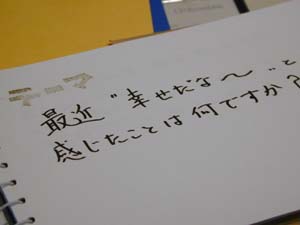 テーマ
最近 "幸せだな〜" と
感じたことは何ですか?